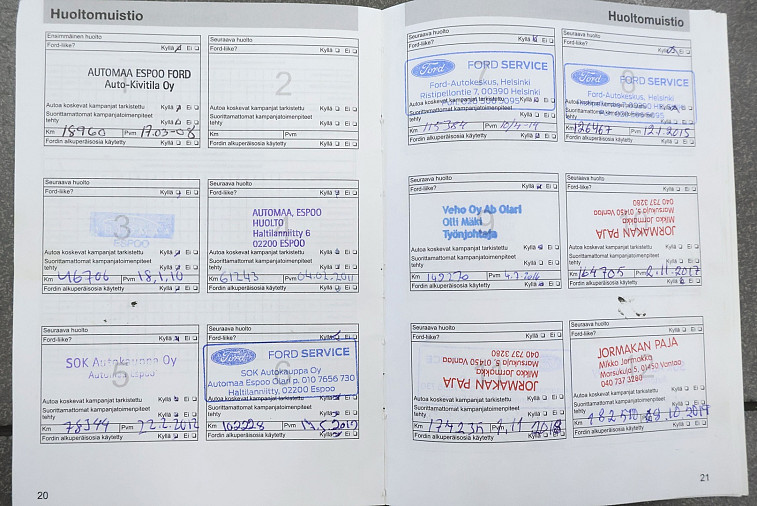 Huoltomuistio
Ensimmäinen huolto
Ford-liike? Kyllä Ei
AUTOMAA ESPOO FORD
Auto-Kivitila Oy
Autoa koskevat kampanjat tarkistettu Kyllä Ei
Suorittamattomat kampanjatoimenpiteet
tehty Kyllä Ei
Km 18960 Pvm 17.03-08
Fordin alkuperäisosia käytetty Kyllä Ei
Seuraava huolto
Ford-liike? Kyllä Ei
2
Autoa koskevat kampanjat tarkistettu Kyllä Ei
Suorittamattomat kampanjatoimenpiteet
tehty Kyllä Ei
Km Pvm
Fordin alkuperäisosia käytetty Kyllä Ei
Seuraava huolto
Ford-liike? Kyllä Ei
3
ESPOO
Autoa koskevat kampanjat tarkistettu Kyllä Ei
Suorittamattomat kampanjatoimenpiteet
tehty Kyllä Ei
Km 46706 Pvm 18.1.10
Fordin alkuperäisosia käytetty Kyllä Ei
Seuraava huolto
Ford-liike? Kyllä Ei
AUTOMAA, ESPOO
HUOLTO
Haltilanniitty 6
02200 ESPOO
Autoa koskevat kampanjat tarkistettu Kyllä Ei
Suorittamattomat kampanjatoimenpiteet
tehty Kyllä Ei
Km 61243 Pvm 04.02.2011
Fordin alkuperäisosia käytetty Kyllä Ei
Seuraava huolto
Ford-liike? Kyllä Ei
SOK Autokauppa Oy
Automaa Espoo
5
Autoa koskevat kampanjat tarkistettu Kyllä Ei
Suorittamattomat kampanjatoimenpiteet
tehty Kyllä Ei
Km Pvm 22.2.2012
Fordin alkuperäisosia käytetty Kyllä Ei
Seuraava huolto
Ford-liike? Kyllä Ei
Ford FORD SERVICE
SOK Autokauppa Oy
Automaa Espoo Olari p. 010 7656 730
Haltilanniitty, 02200 Espoo
6
Autoa koskevat kampanjat tarkistettu Kyllä Ei
Suorittamattomat kampanjatoimenpiteet
tehty Kyllä Ei
Km Pvm
Fordin alkuperäisosia käytetty Kyllä Ei
20
Huoltomuistio
Seuraava huolto
Ford-liike? Kyllä Ei
Ford FORD SERVICE
7
Ford-Autokeskus, Helsinki
Ristipellontie 7, 00390 Helsinki
Autoa koskevat kampanjat tarkistettu Kyllä Ei
Suorittamattomat kampanjatoimenpiteet
tehty Kyllä Ei
Km 115384 Pvm 10/4-14
Fordin alkuperäisosia käytetty Kyllä Ei
Seuraava huolto
Ford-liike? Kyllä Ei
Ford FORD SERVICE
8
Ford-Autokeskus, Helsinki
Autoa koskevat kampanjat tarkistettu Kyllä Ei
Suorittamattomat kampanjatoimenpiteet
tehty Kyllä Ei
Km 126467 Pvm 12.1.2015
Fordin alkuperäisosia käytetty Kyllä Ei
Seuraava huolto
Ford-liike? Kyllä Ei
Veho Oy Ab Olari
Olli Mäki
Työnjohtaja
9
Autoa koskevat kampanjat tarkistettu Kyllä Ei
Suorittamattomat kampanjatoimenpiteet
tehty Kyllä Ei
Km 149270 Pvm 4.7.2016
Fordin alkuperäisosia käytetty Kyllä Ei
Seuraava huolto
Ford-liike? Kyllä Ei
JORMAKAN PAJA
Mikko Jormakka
Marsukuja 5, 01450 Vantaa
040 737 3280
Autoa koskevat kampanjat tarkistettu Kyllä Ei
Suorittamattomat kampanjatoimenpiteet
tehty Kyllä Ei
Km 164705 Pvm 2.11.2017
Fordin alkuperäisosia käytetty Kyllä Ei
Seuraava huolto
Ford-liike? Kyllä Ei
JORMAKAN PAJA
Mikko Jormakka
Marsukuja 5, 01450 Vantaa
040 737 3280
Autoa koskevat kampanjat tarkistettu Kyllä Ei
Suorittamattomat kampanjatoimenpiteet
tehty Kyllä Ei
Km Pvm
Fordin alkuperäisosia käytetty Kyllä Ei
Seuraava huolto
Ford-liike? Kyllä Ei
JORMAKAN PAJA
Mikko Jormakka
Marsukuja 5, 01450 Vantaa
040 737 3280
Autoa koskevat kampanjat tarkistettu Kyllä Ei
Suorittamattomat kampanjatoimenpiteet
tehty Kyllä Ei
Fordin alkuperäisosia käytetty Kyllä Ei
21